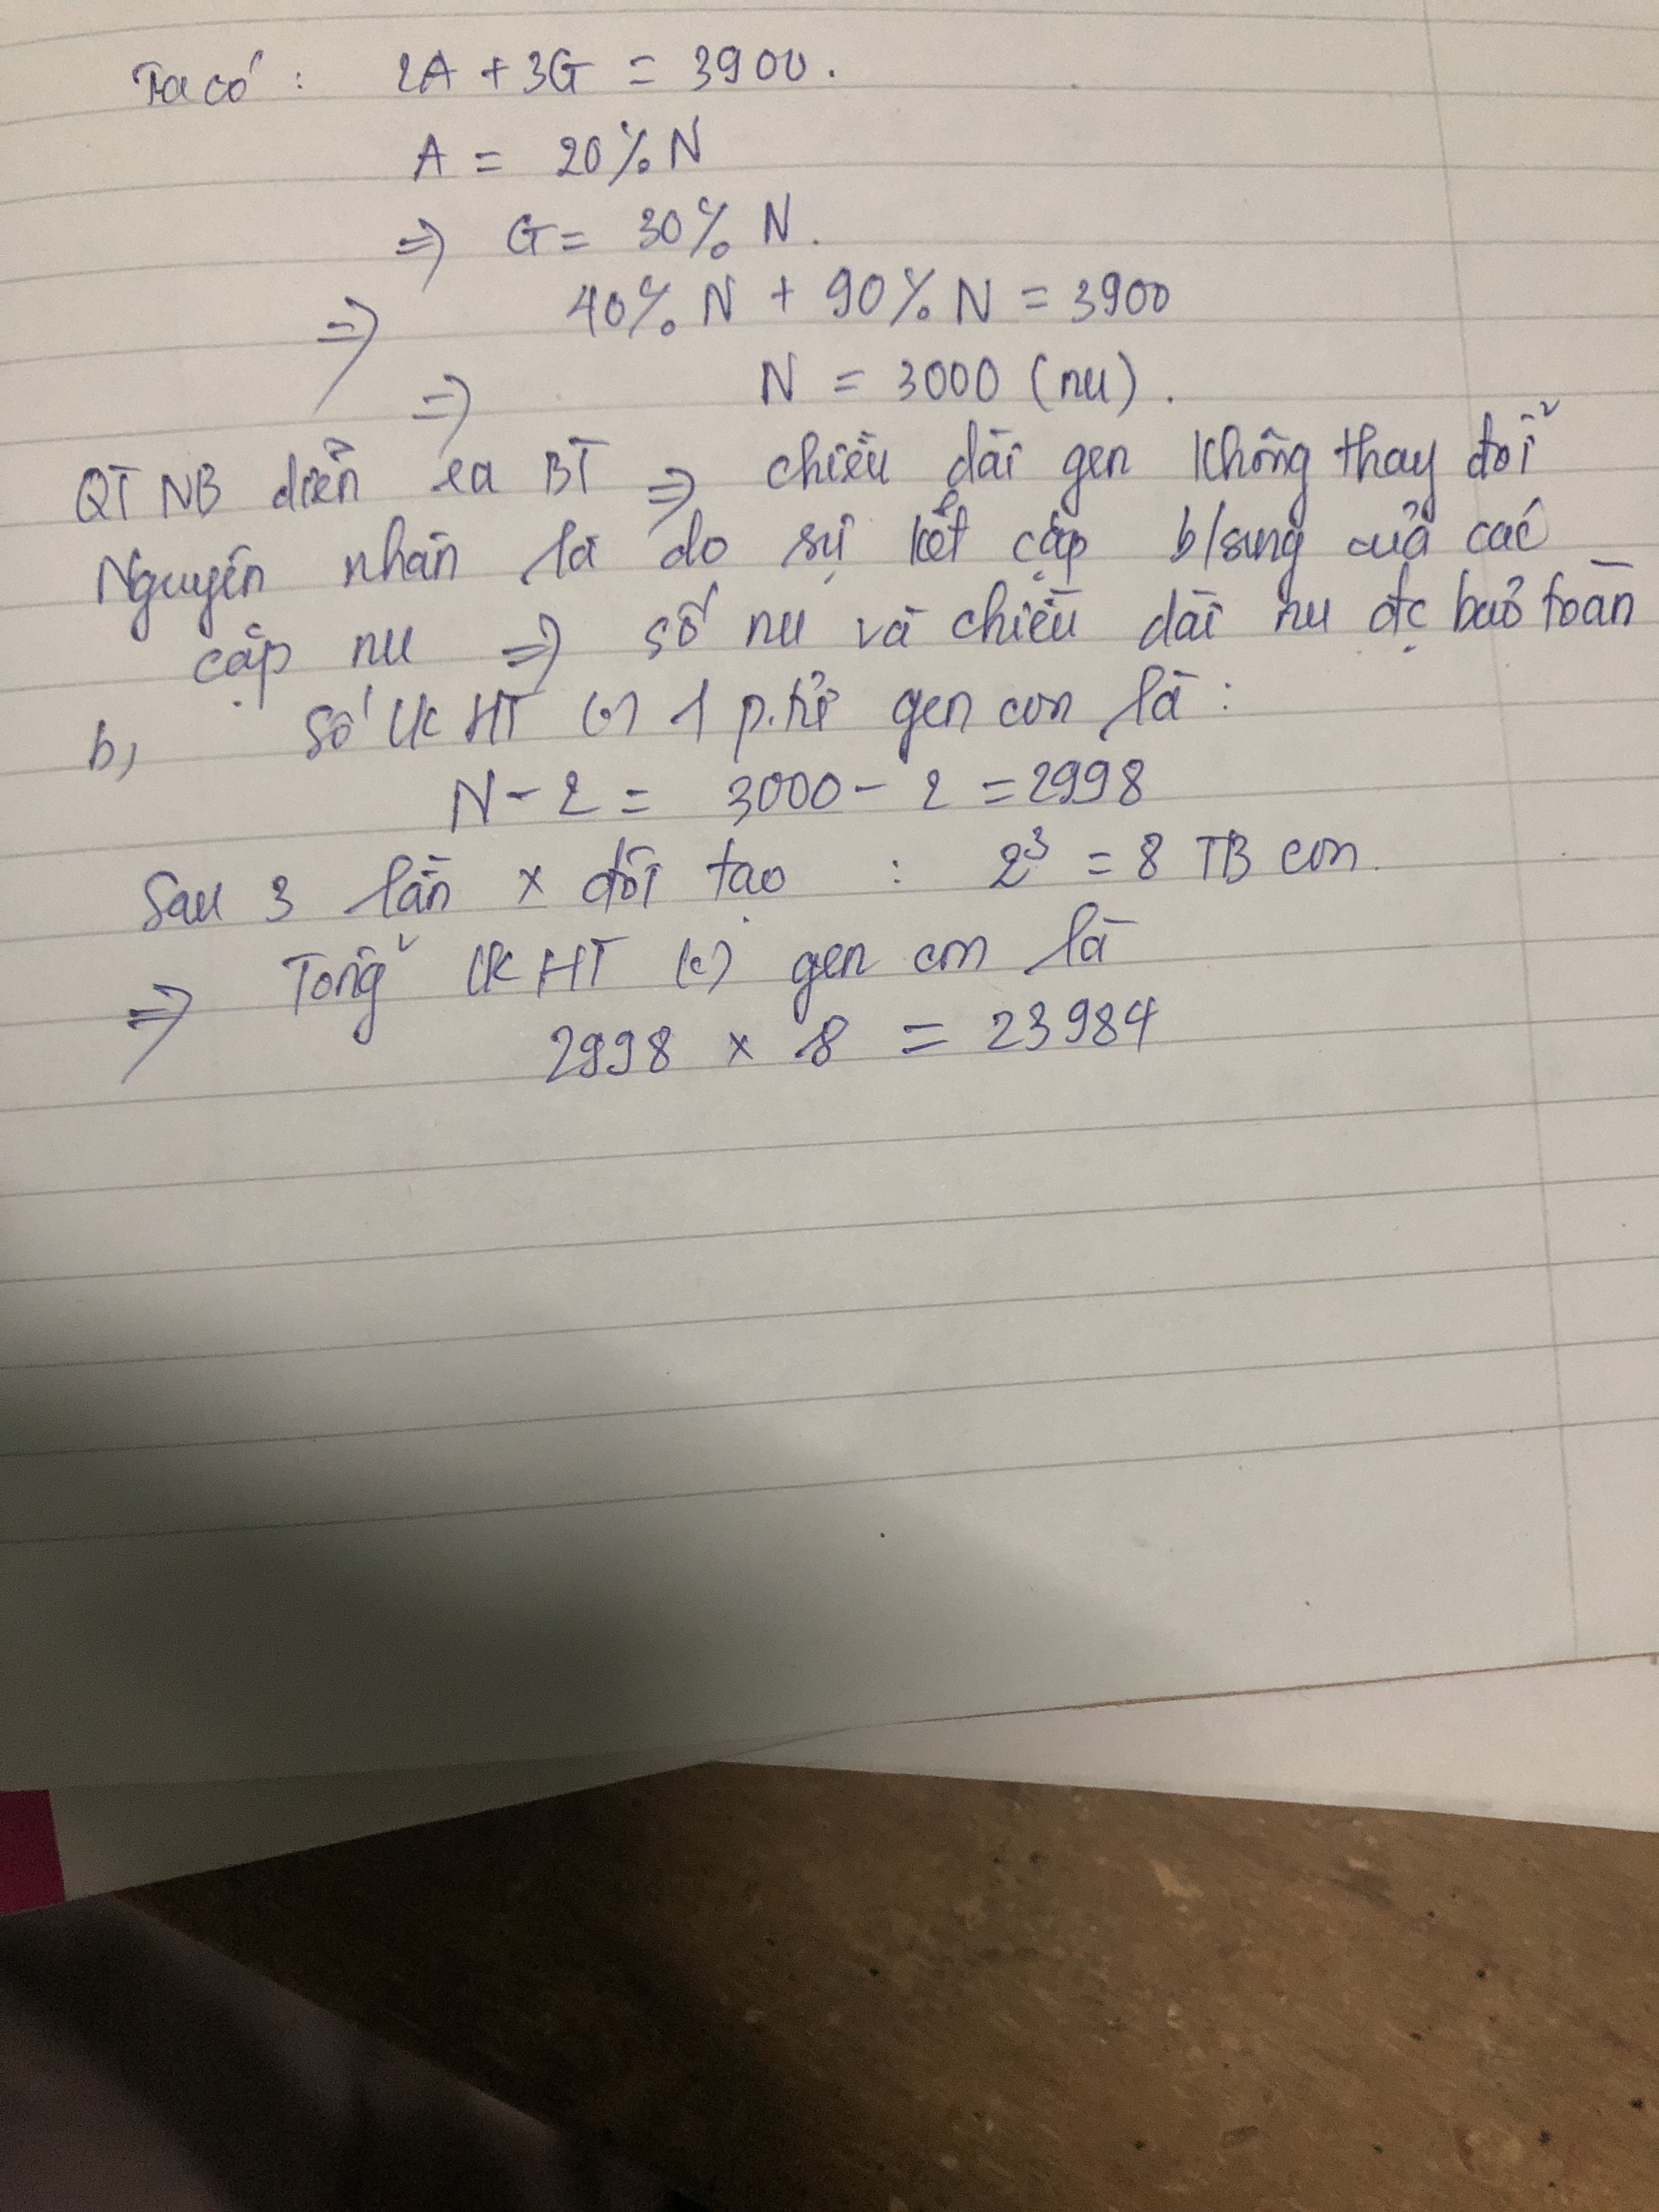 Ta có : 2A + 3G = 3900.
A = 20% N
=> G = 30% N.
=> 40% N + 90% N = 3900
=> N = 3000 (nu).
QT NB diễn ra BT => chiều dài gen không thay đổi
Nguyên nhân là do sự kết cặp b/sung của các
cặp nu => số nu và chiều dài nu đc bảo toàn
b, Số lk HT (c) 1 p.tử gen con là :
N - 2 = 3000 - 2 = 2998
Sau 3 lần x đôi tạo : 2³ = 8 TB con.
=> Tổng lk HT (c) gen con là
2998 x 8 = 23984